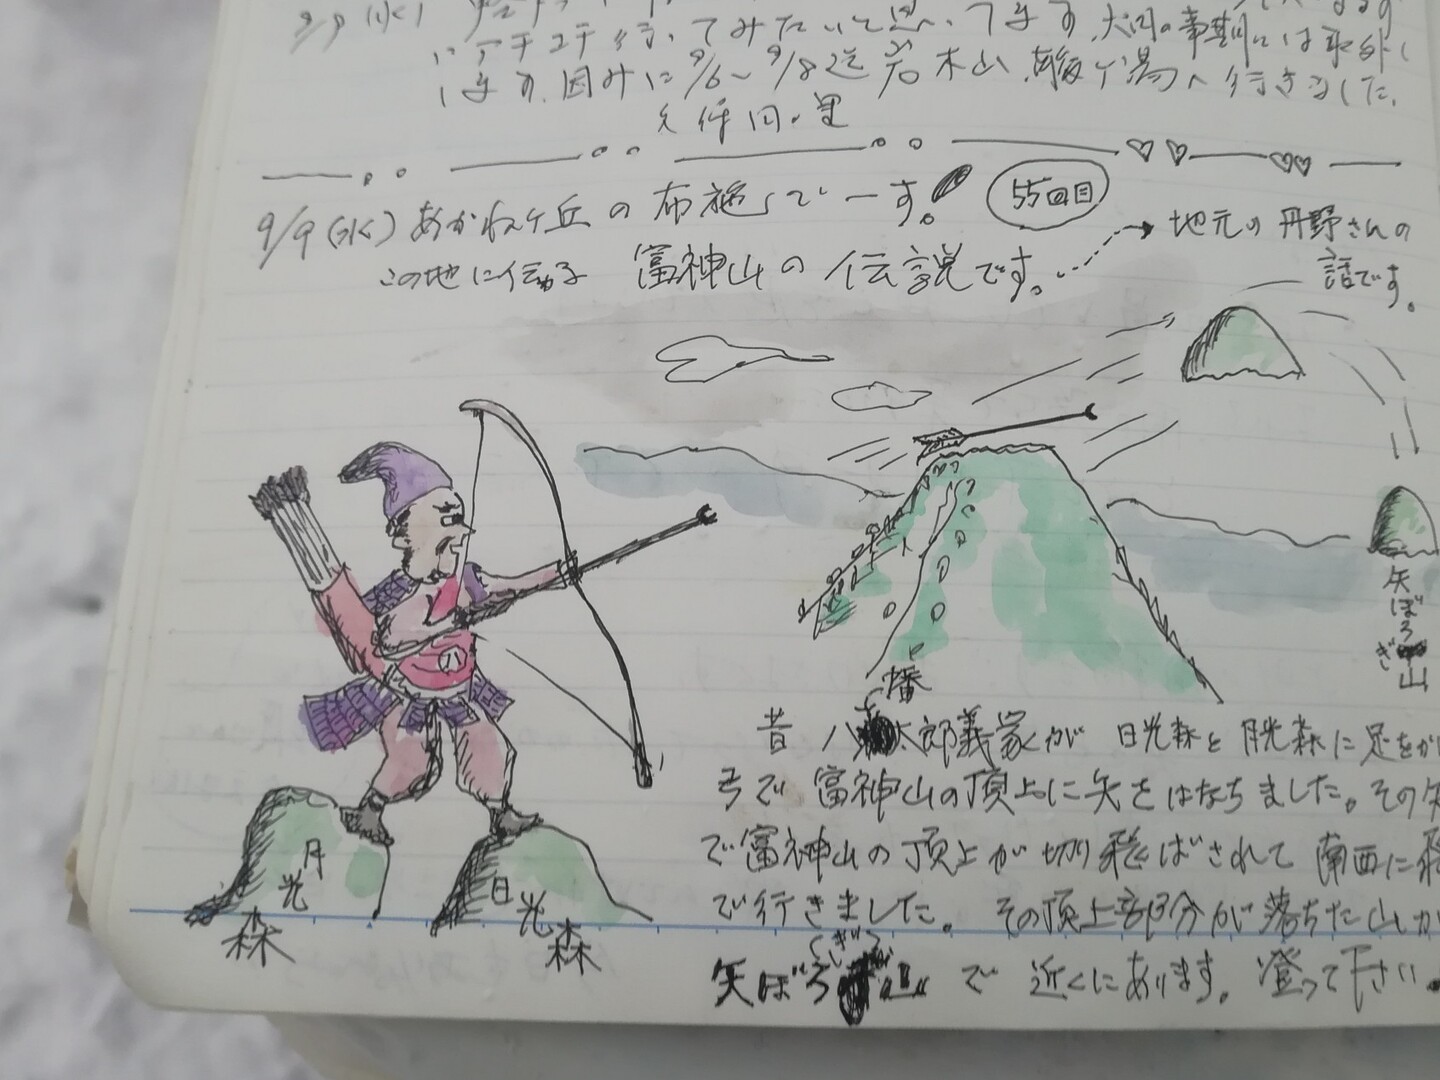 9/9(水)
に
行ってみたいと思ってます。犬同の事期には取外し
します。因みに9/6〜9/8迄岩木山、酸ヶ湯へ行きました。
9/9(水) あかねヶ丘の布施でーす。 55回目
この地に伝わる 富神山の伝説です。 地元の丹野さんの
話です。
矢ぼろぎ山
八
月光森
日光森
昔 八幡太郎義家が 日光森と月光森に足をか
弓で富神山の頂上に矢をはなちました。その矢
で富神山の頂上が切り飛ばされて 南西に飛
で行きました。 その頂上部分が落ちた山が
矢ぼろぎ山で 近くにあります。登って下さい。